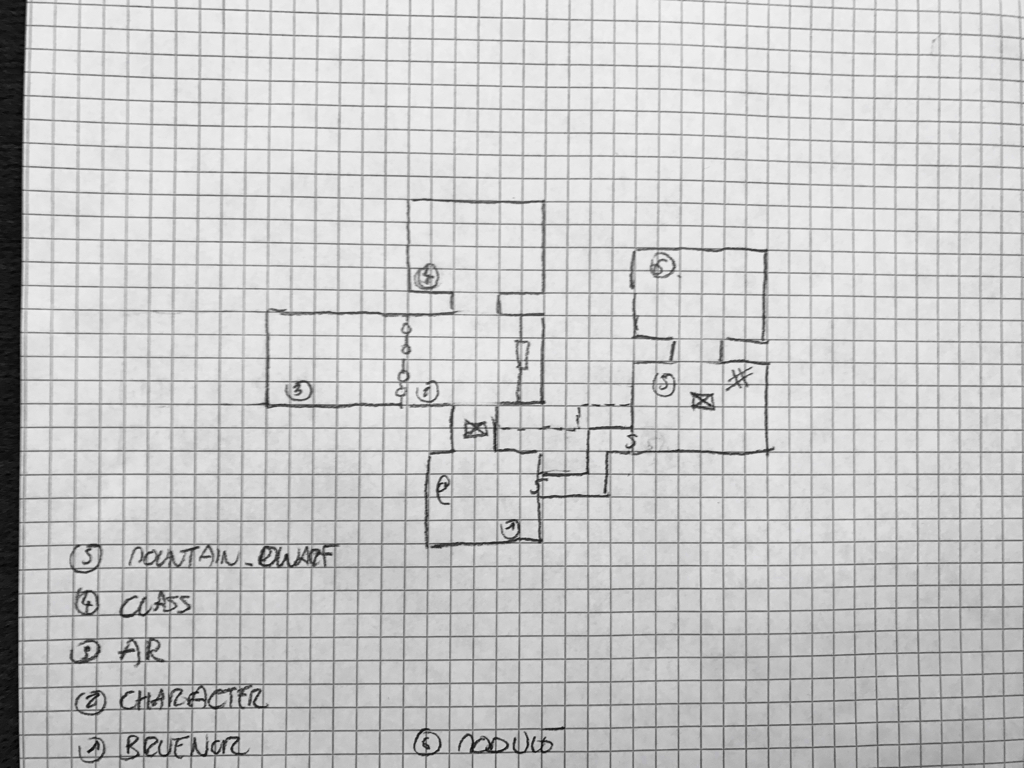 4
6
5
3
2
S
S
1
5 MOUNTAIN_DWARF
4 CLASS
3 AR
2 CHARACTER
1 BRUENOR
6